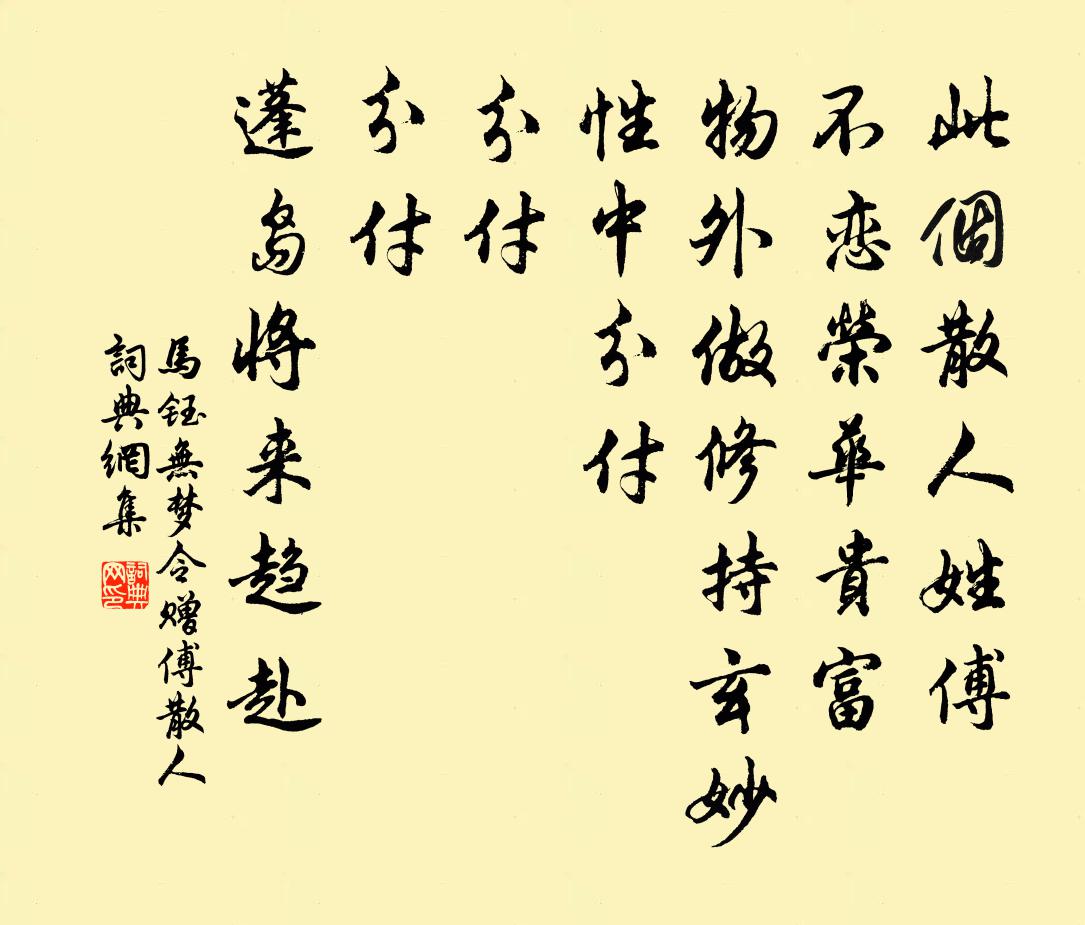 此個散人姓傅
不恋榮華貴富
物外做修持玄妙
性中分付
分付
分付
蓬島将来趋赴
馬鈺無梦令赠傅散人
詞典網集
詞典网印